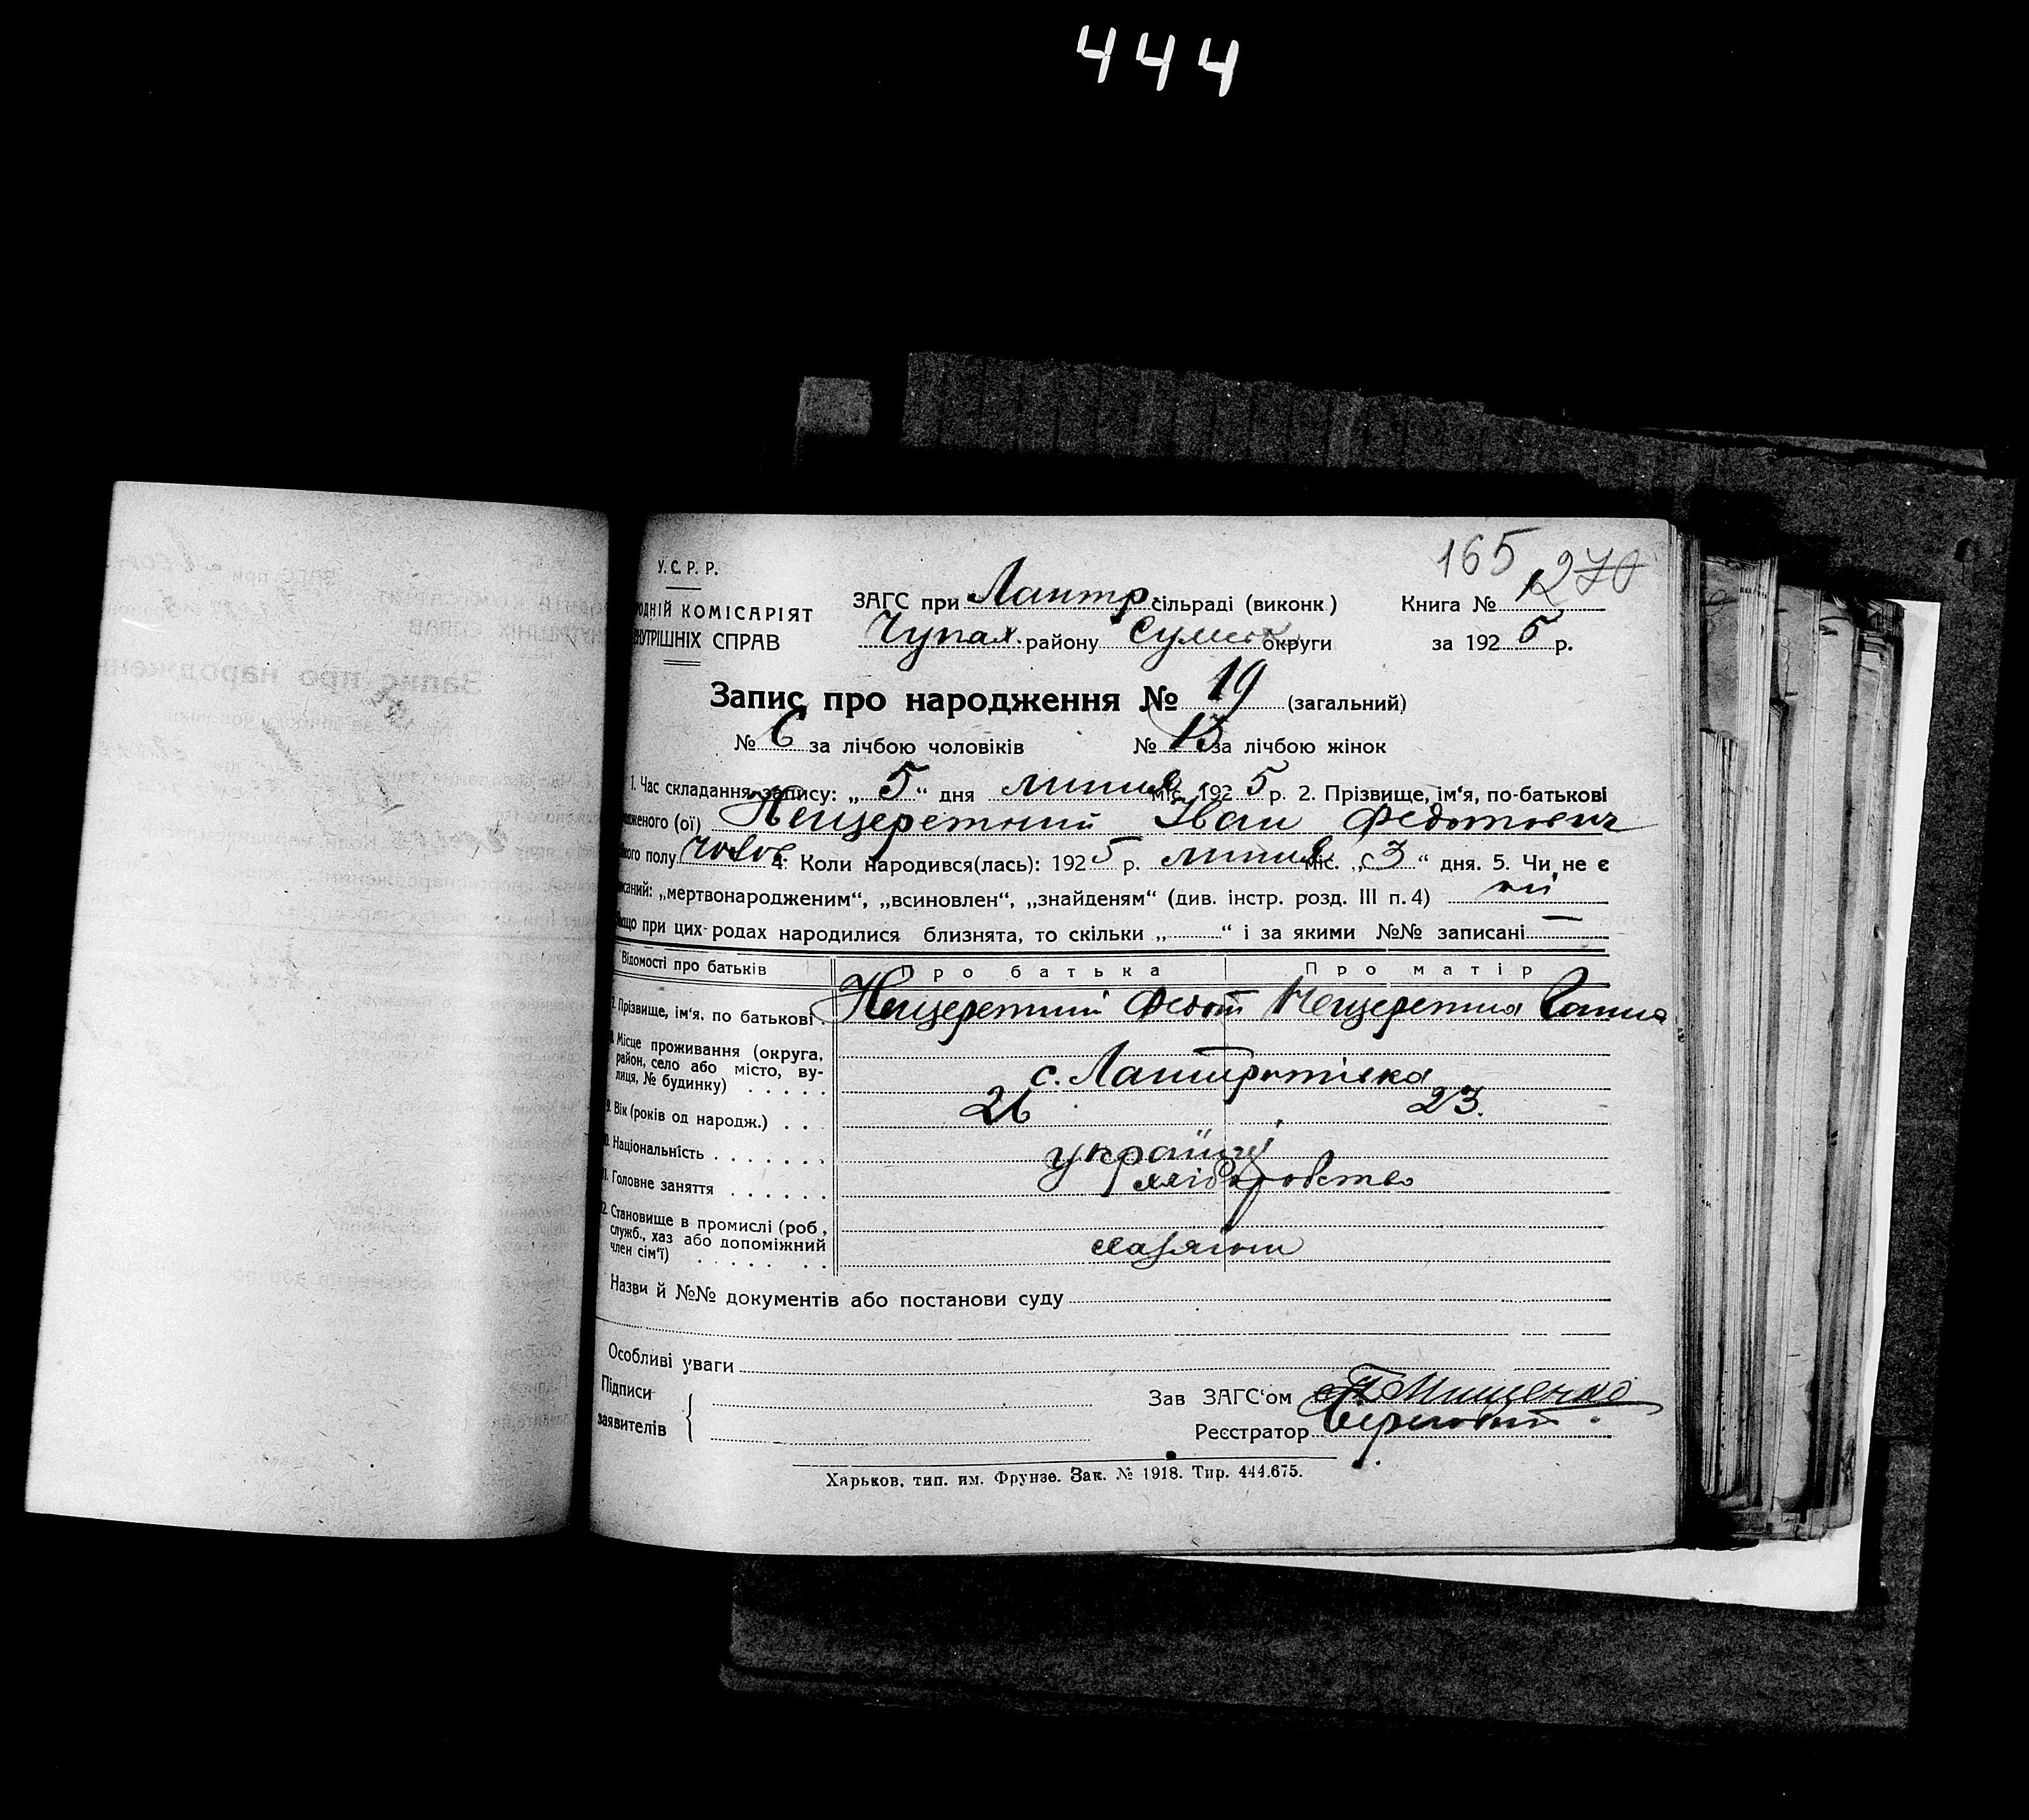 444
165 270
У.С.Р.Р.
ЗАГС при Лантр. сільраді (виконк.) Книга № 1
ОДНІЙ КОМІСАРІЯТ
Чупах. району Сумськ округи за 1925 р.
НУТРІШНІХ СПРАВ
Запис про народження № 19 (загальний)
№ 6 за лічбою чоловіків № 13 за лічбою жінок
1. Час складання запису: „5“ дня липня міс. 1925 р. 2. Прізвище, ім‘я, по-батькові
дженого (ої) Нещеретний Іван Федотович
ного полу чолов 4. Коли народився(лась): 1925 р. липня міс. „3“ дня. 5. Чи не є
исаний: „мертвонародженим“, „всиновлен“, „знайденям“ (див. інстр. розд. III п.4) ні
якщо при цих родах народилися близнята, то скільки „ “ і за якими №№ записані —
Відомості про батьків Про батька Про матір
Прізвище, ім‘я, по батькові . Нещеретний Федот Нещеретна Ганна
Місце проживання (округа,
район, село або місто, ву-
лиця, № будинку) . . . . . с. Лантратівка
9. Вік (років од народж.) . . . 26 23.
10. Національність . . . . . . . українці
11. Головне заняття . . . . . . хліборобство
12. Становище в промислі (роб.,
служб., хаз або допоміжний
член сім‘ї) . . . . . . . хазяїни
Назви й №№ документів або постанови суду
Особливі уваги
Підписи
заявителів
Зав ЗАГС‘ом П Мищенко
Реєстратор
Харьков, тип. им. Фрунзе. Зак. № 1918. Тир. 444.675.